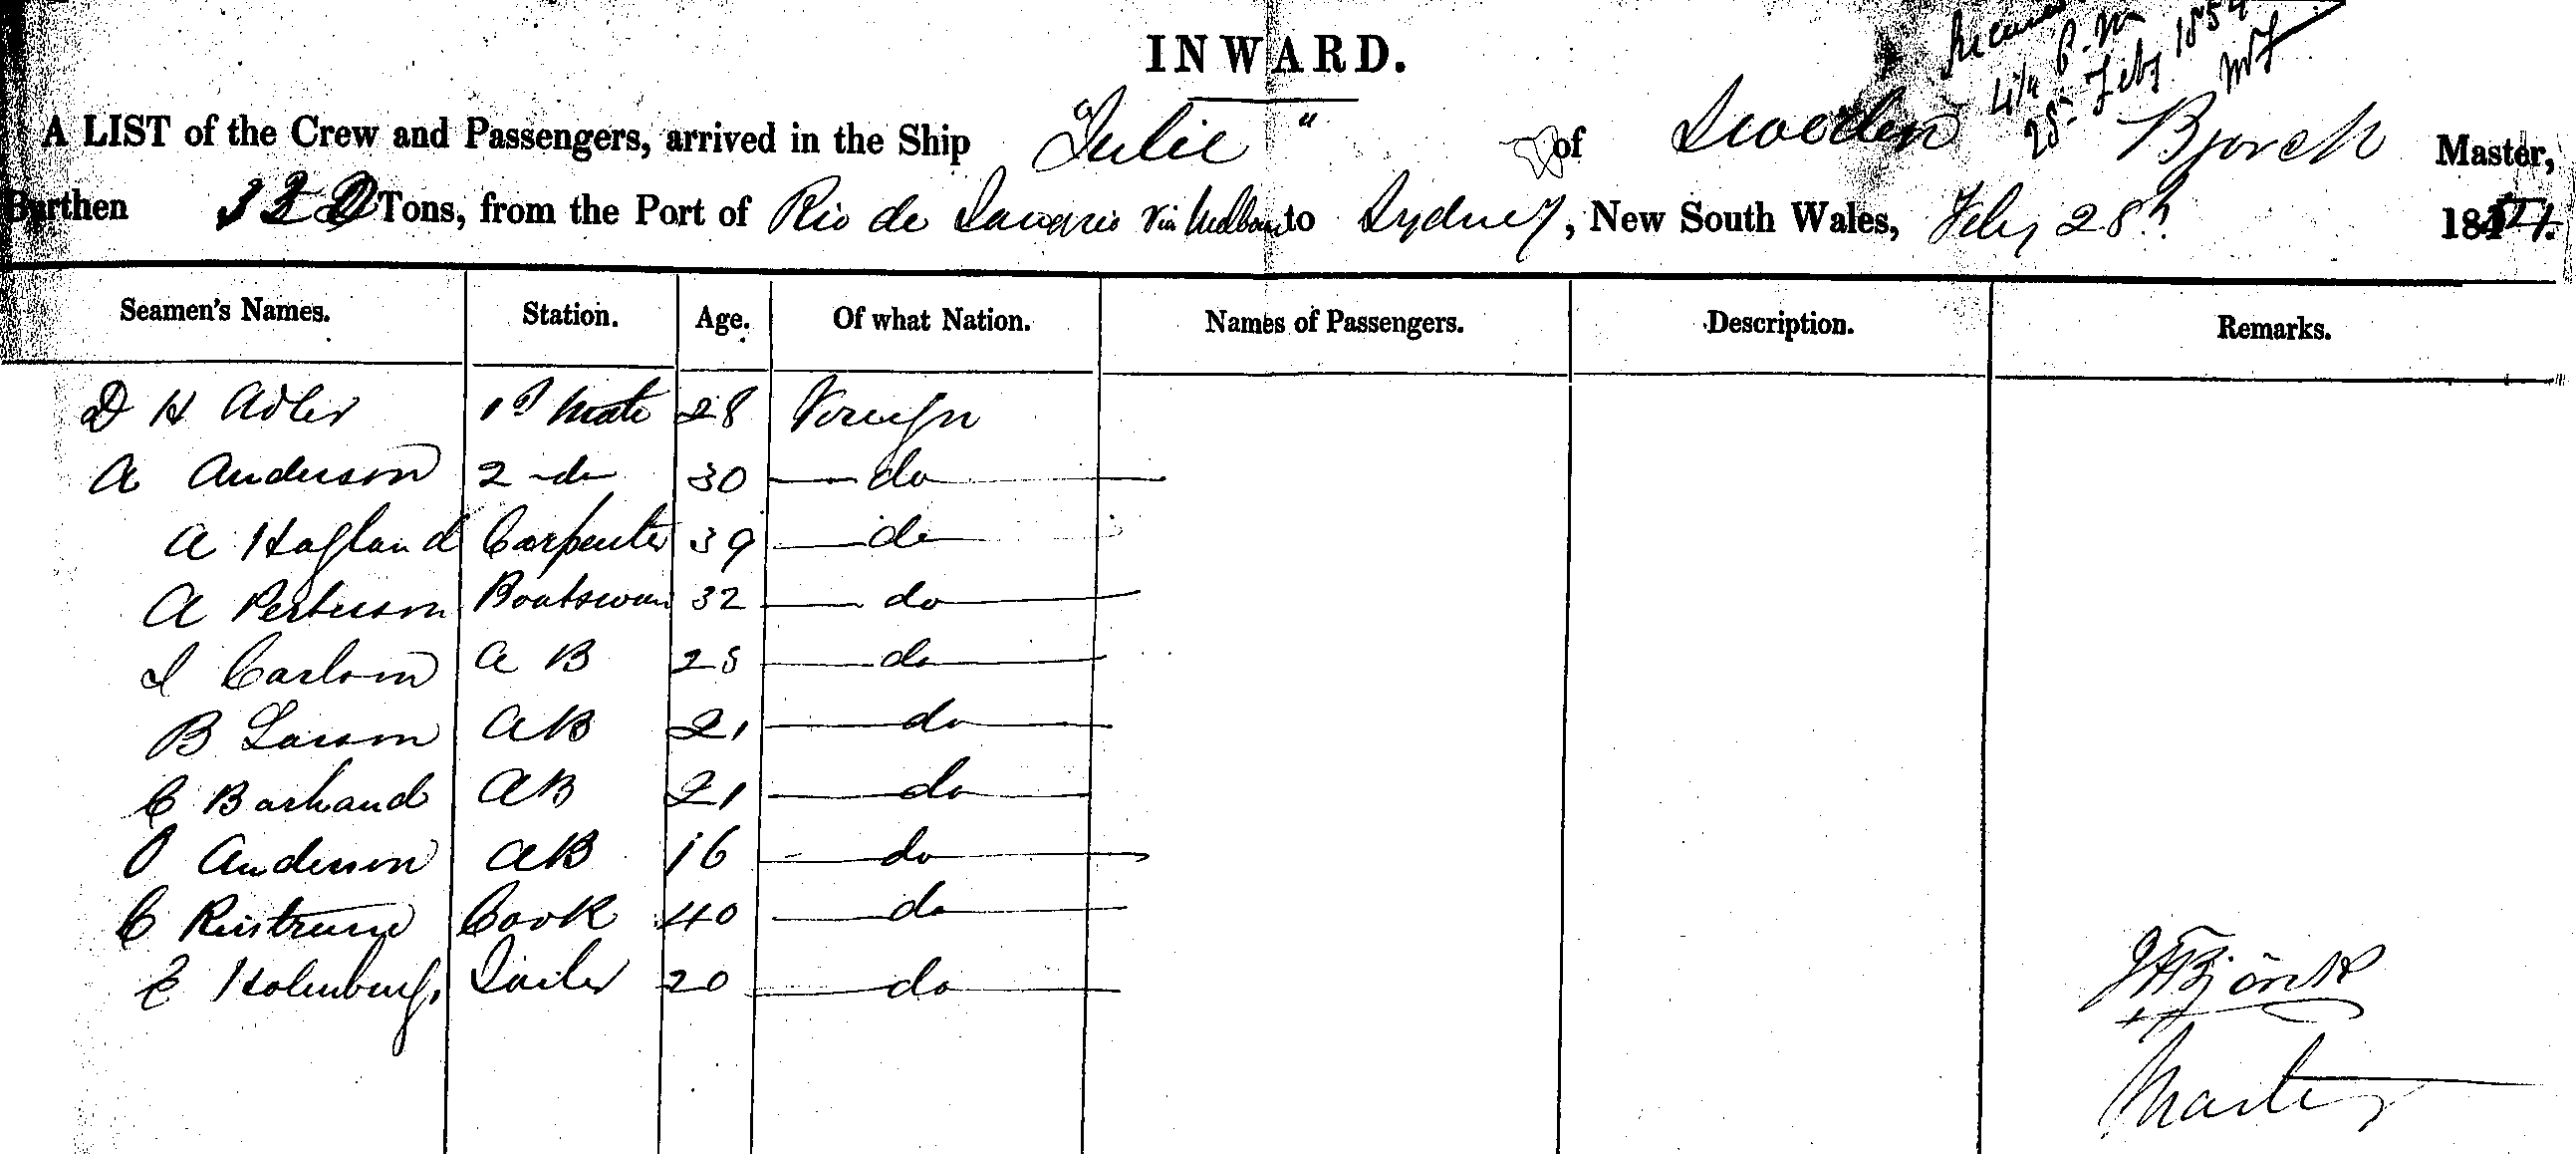 INWARD.
4 1/4 P.M
28 Feby 1854
A LIST of the Crew and Passengers, arrived in the Ship "Julie" of Sweden Bjorck Master,
Burthen 320 Tons, from the Port of Rio de Janario via Melbourne to Sydney, New South Wales, Feby 28th 1854.
Seamen's Names. Station. Age. Of what Nation. Names of Passengers. Description. Remarks.
D H Adler 1st Mate 28 Foreign
A Anderson 2 do 30 do
A Hagland Carpenter 39 do
A Petersson Boatswain 32 do
Carlson A B 25 do
B Larson AB 21 do
C AB 21 do
O Anderson AB 16 do
C Cook 40 do
E Holmberg. Sailer 20 do
Björck
Master